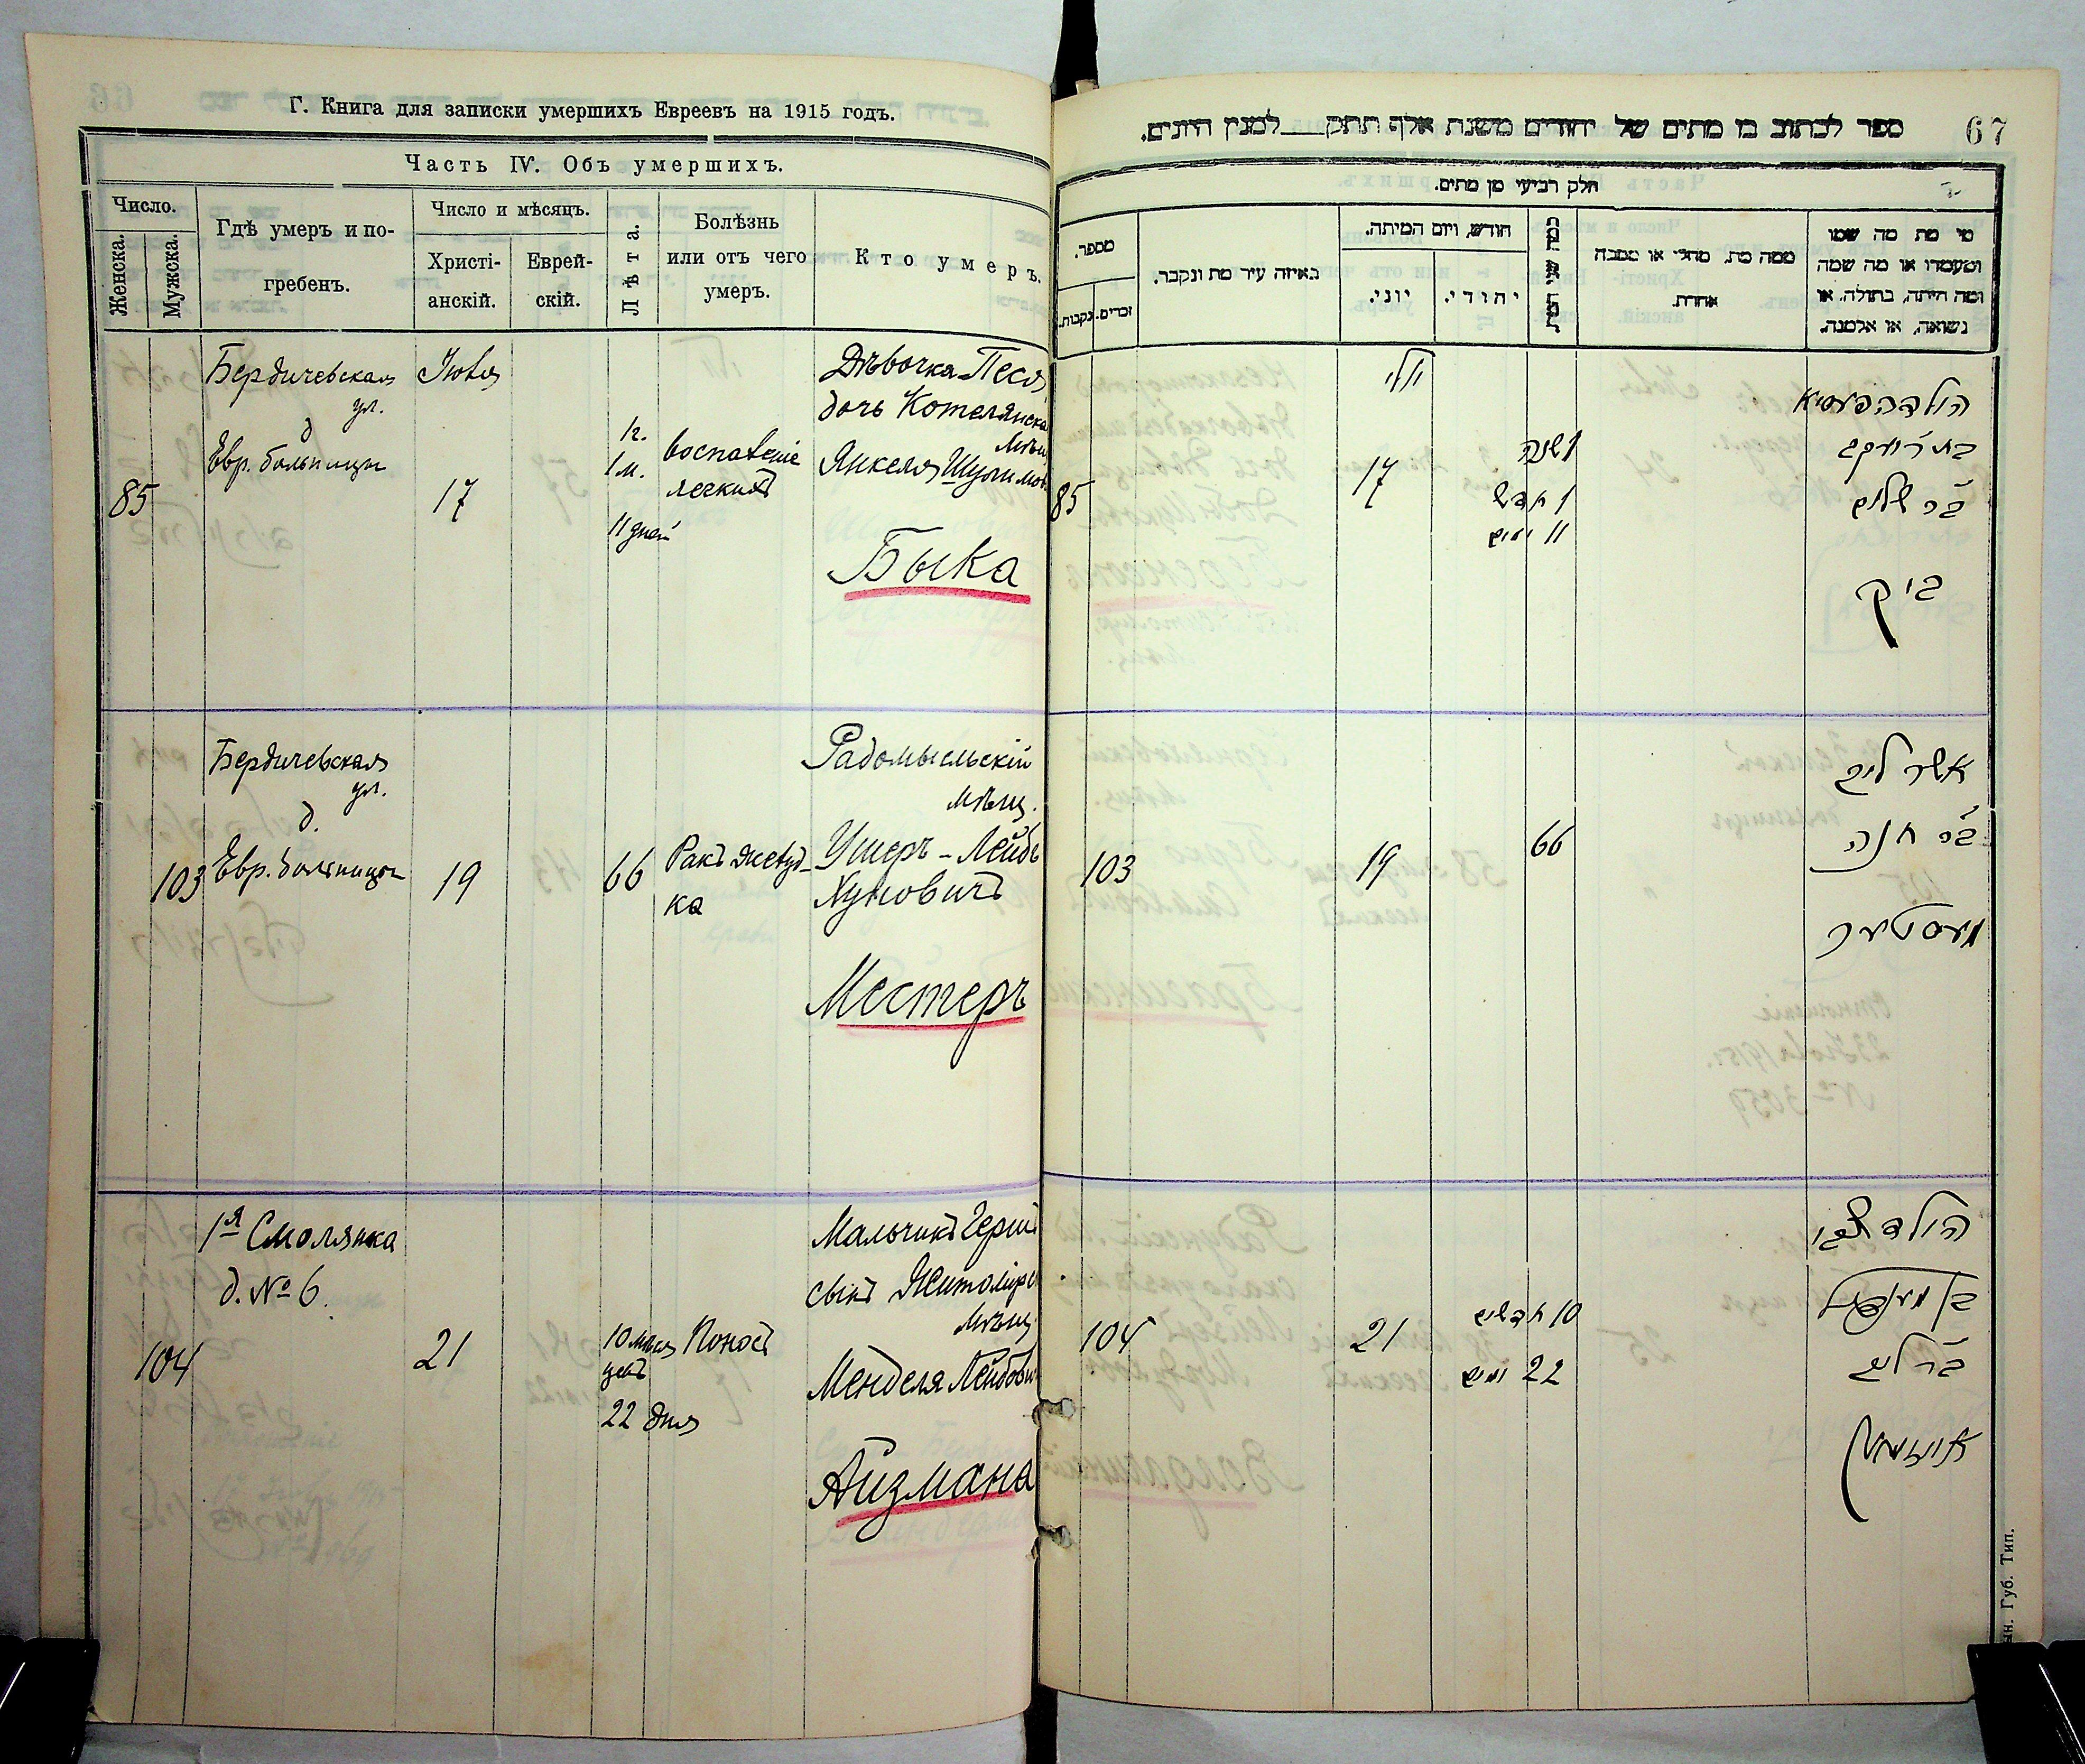 Г. Книга для записки умершихъ Евреевъ на 1915 годъ.
Часть IV. Объ умершихъ.
Число.
Женска.
Мужска.
Гдѣ умеръ и по-
гребенъ.
Число и мѣсяцъ.
Христі-
анскій.
Еврей-
скій.
Лѣта.
Болѣзнь
или отъ чего
умеръ.
Кто умеръ.
85
Бердичевская
ул.
д
Евр. больницы
Іюля
17
1 г.
1 м.
11 дней
воспаленіе
легкихъ
Дѣвочка Песя
дочь Котелянска
мѣщ
Янкеля Шулимов
Быка
103
Бердичевская
ул.
д.
Евр. больницы
19
66
Ракъ желуд-
ка
Радомысльскій
мѣщ.
Ушеръ-Лейбъ
Хуновичъ
Местеръ
104
1я Смолянка
д. № 6.
21
10 мѣся
цевъ
22 дня
Поносъ
Мальчикъ Герш
сынъ Житомірс
мѣщ
Менделя Лейбови
Айзмана
ספר לכתוב בו מתים של יהודים משנת אלף תתק למנין היונים.
67
חלק רביעי מן מתים.
מספר.
זכרים.
נקבות.
באיזה עיר מת ונקבר.
חודש, ויום המיתה.
יוני.
יהודי.
ממה מת, מחלי או מסבה
אחרת.
מי מת מה שמו
ומעמדו או מה שמה
ומה היתה, בתולה, או
נשואה, או אלמנה.
85
יולי
17
1 שנה
1 חדש
11 ימים
הילדה פעסיא
בת יעקב
בר שלום
ביק
103
19
66
אשר ליב
בר חנה
מעסטער
104
21
10 חדשים
22 ימים
הילד צבי
בן מענדיל
בר ליב
אייזמאן
Губ. Тип.